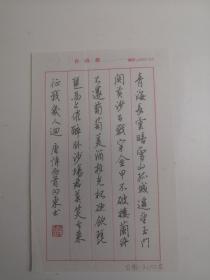 青海長雲暗雪山孤城遥望玉門
関黄沙百戰穿金甲不破楼蘭终
不還葡萄美酒夜光杯欲飲
琵琶马上催醉卧沙場君莫笑古来
征戰幾人迴 唐詩両首